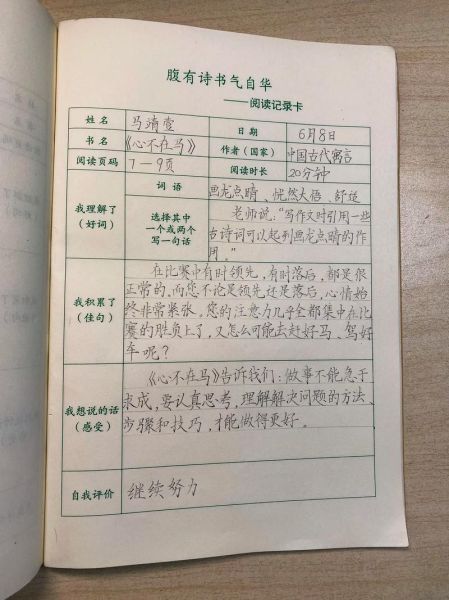 腹有诗书气自华
——阅读记录卡
姓名 马靖壹 日期 6月8日
书名 《心不在马》 作者(国家) 中国古代寓言
阅读页码 7—9页 阅读时长 20分钟
我理解了(好词) 词语 画龙点睛、恍然大悟、舒适
选择其中一个或两个写一句话 老师说:“写作文时引用一些
古诗词可以起到画龙点睛的作
用。”
我积累了(佳句) 在比赛中有时领先,有时落后,都是很
正常的,而您不论是领先还是落后,心情始
终非常紧张,您的注意力几乎全都集中在比
赛的胜负上了,又怎么可能去赶好马、驾好
车呢?
我想说的话(感受) 《心不在马》告诉我们:做事不能急于
求成,要认真思考,理解解决问题的方法、
步骤和技巧,才能做得更好。
自我评价 继续努力